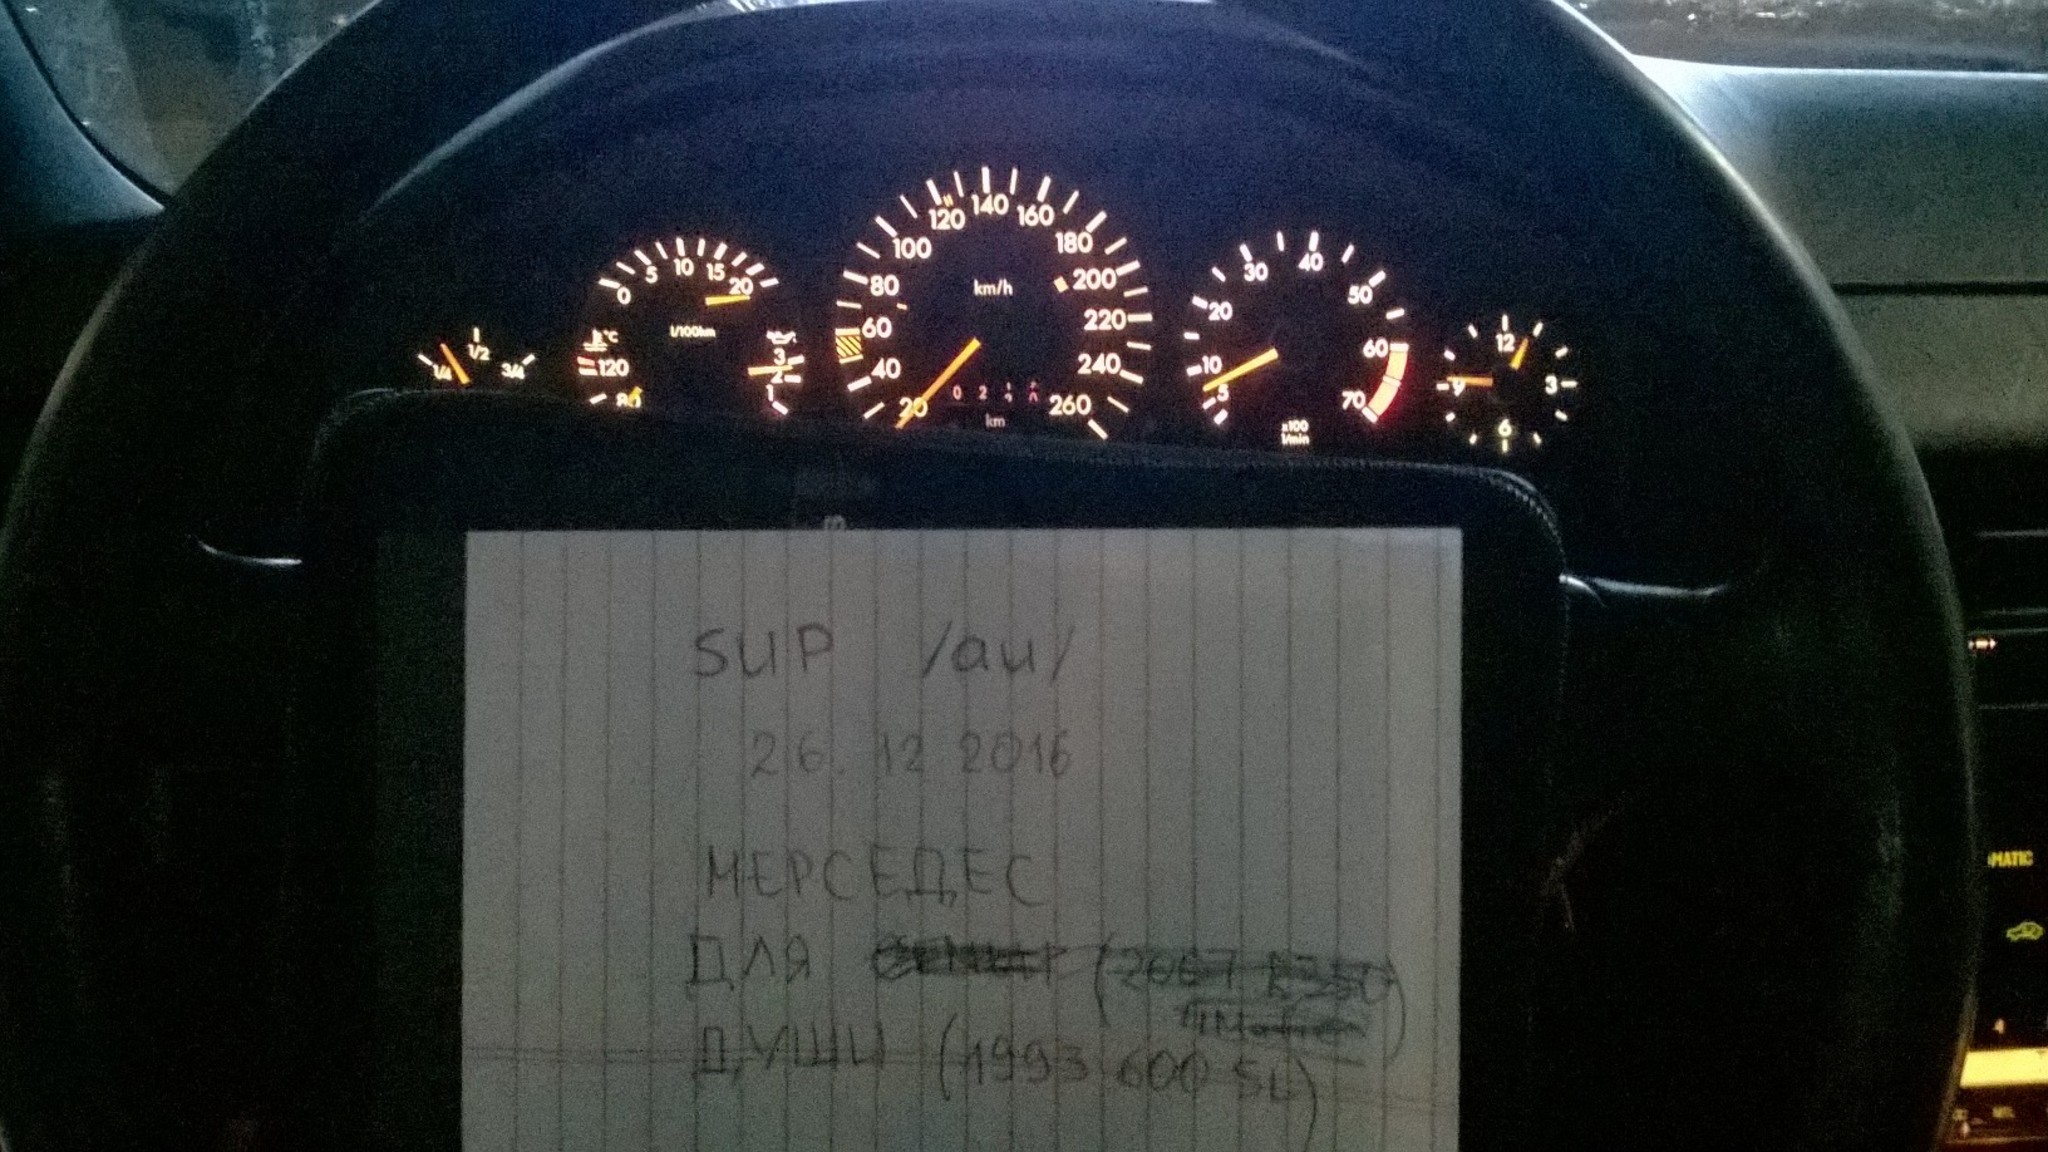 1/4 1/2 3/4
0 5 10 15 20
l/100km
°C
120
80
3
2
1
20 40 60 80 100 120 140 160 180 200 220 240 260
km/h
km
5 10 20 30 40 50 60 70
x100
1/min
12
3
6
9
SUP /au/
26.12 2016
МЕРСЕДЕС
ДЛЯ
ДУШИ (1993 600 SL)
MATIC
4